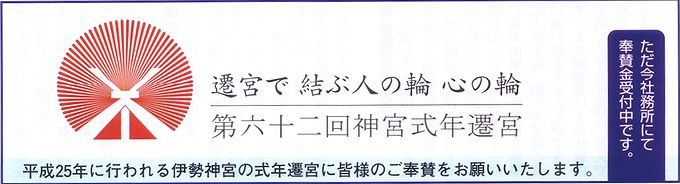 遷宮で 結ぶ人の輪 心の輪
第六十二回神宮式年遷宮
平成25年に行われる伊勢神宮の式年遷宮に皆様のご奉賛をお願いいたします。
ただ今社務所にて
奉賛金受付中です。